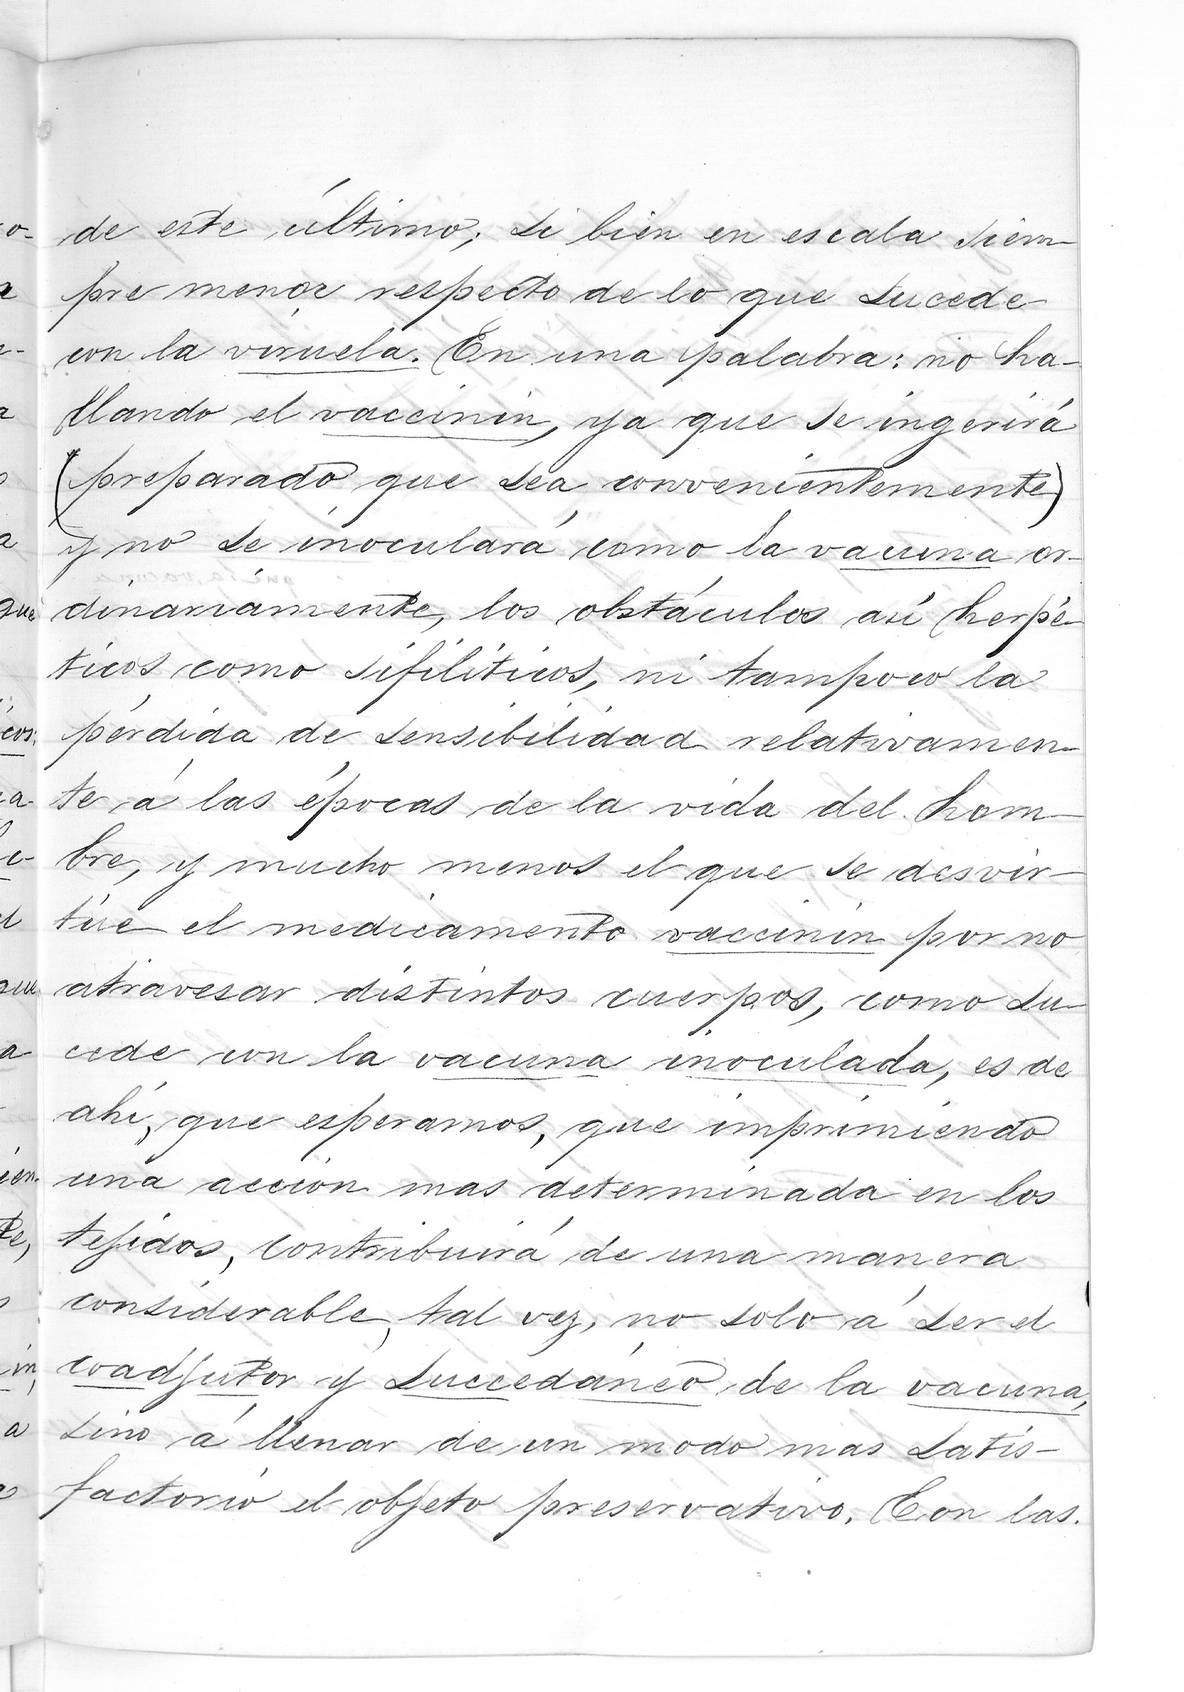 de este último; si bien en escala siem-
pre menor respecto de lo que sucede
con la viruela. En una palabra: no ha-
llando el vaccinin, ya que se ingerirá
(preparado que sea convenientemente)
y no se inoculará como la vacuna or-
dinariamente, los obstáculos asi herpé-
ticos como sifilíticos, ni tampoco la
pérdida de sensibilidad relativamen-
te á las épocas de la vida del hom-
bre, y mucho menos el que se desvir-
túe el medicamento vaccinin por no
atravesar distintos cuerpos, como su-
cede con la vacuna inoculada, es de
ahí, que esperamos, que imprimiendo
una accion mas determinada en los
tejidos, contribuirá de una manera
considerable, tal vez, no solo á ser el
coadjutor y succedáneo de la vacuna,
sino á llenar de un modo mas satis-
factorio el objeto preservativo. Con las